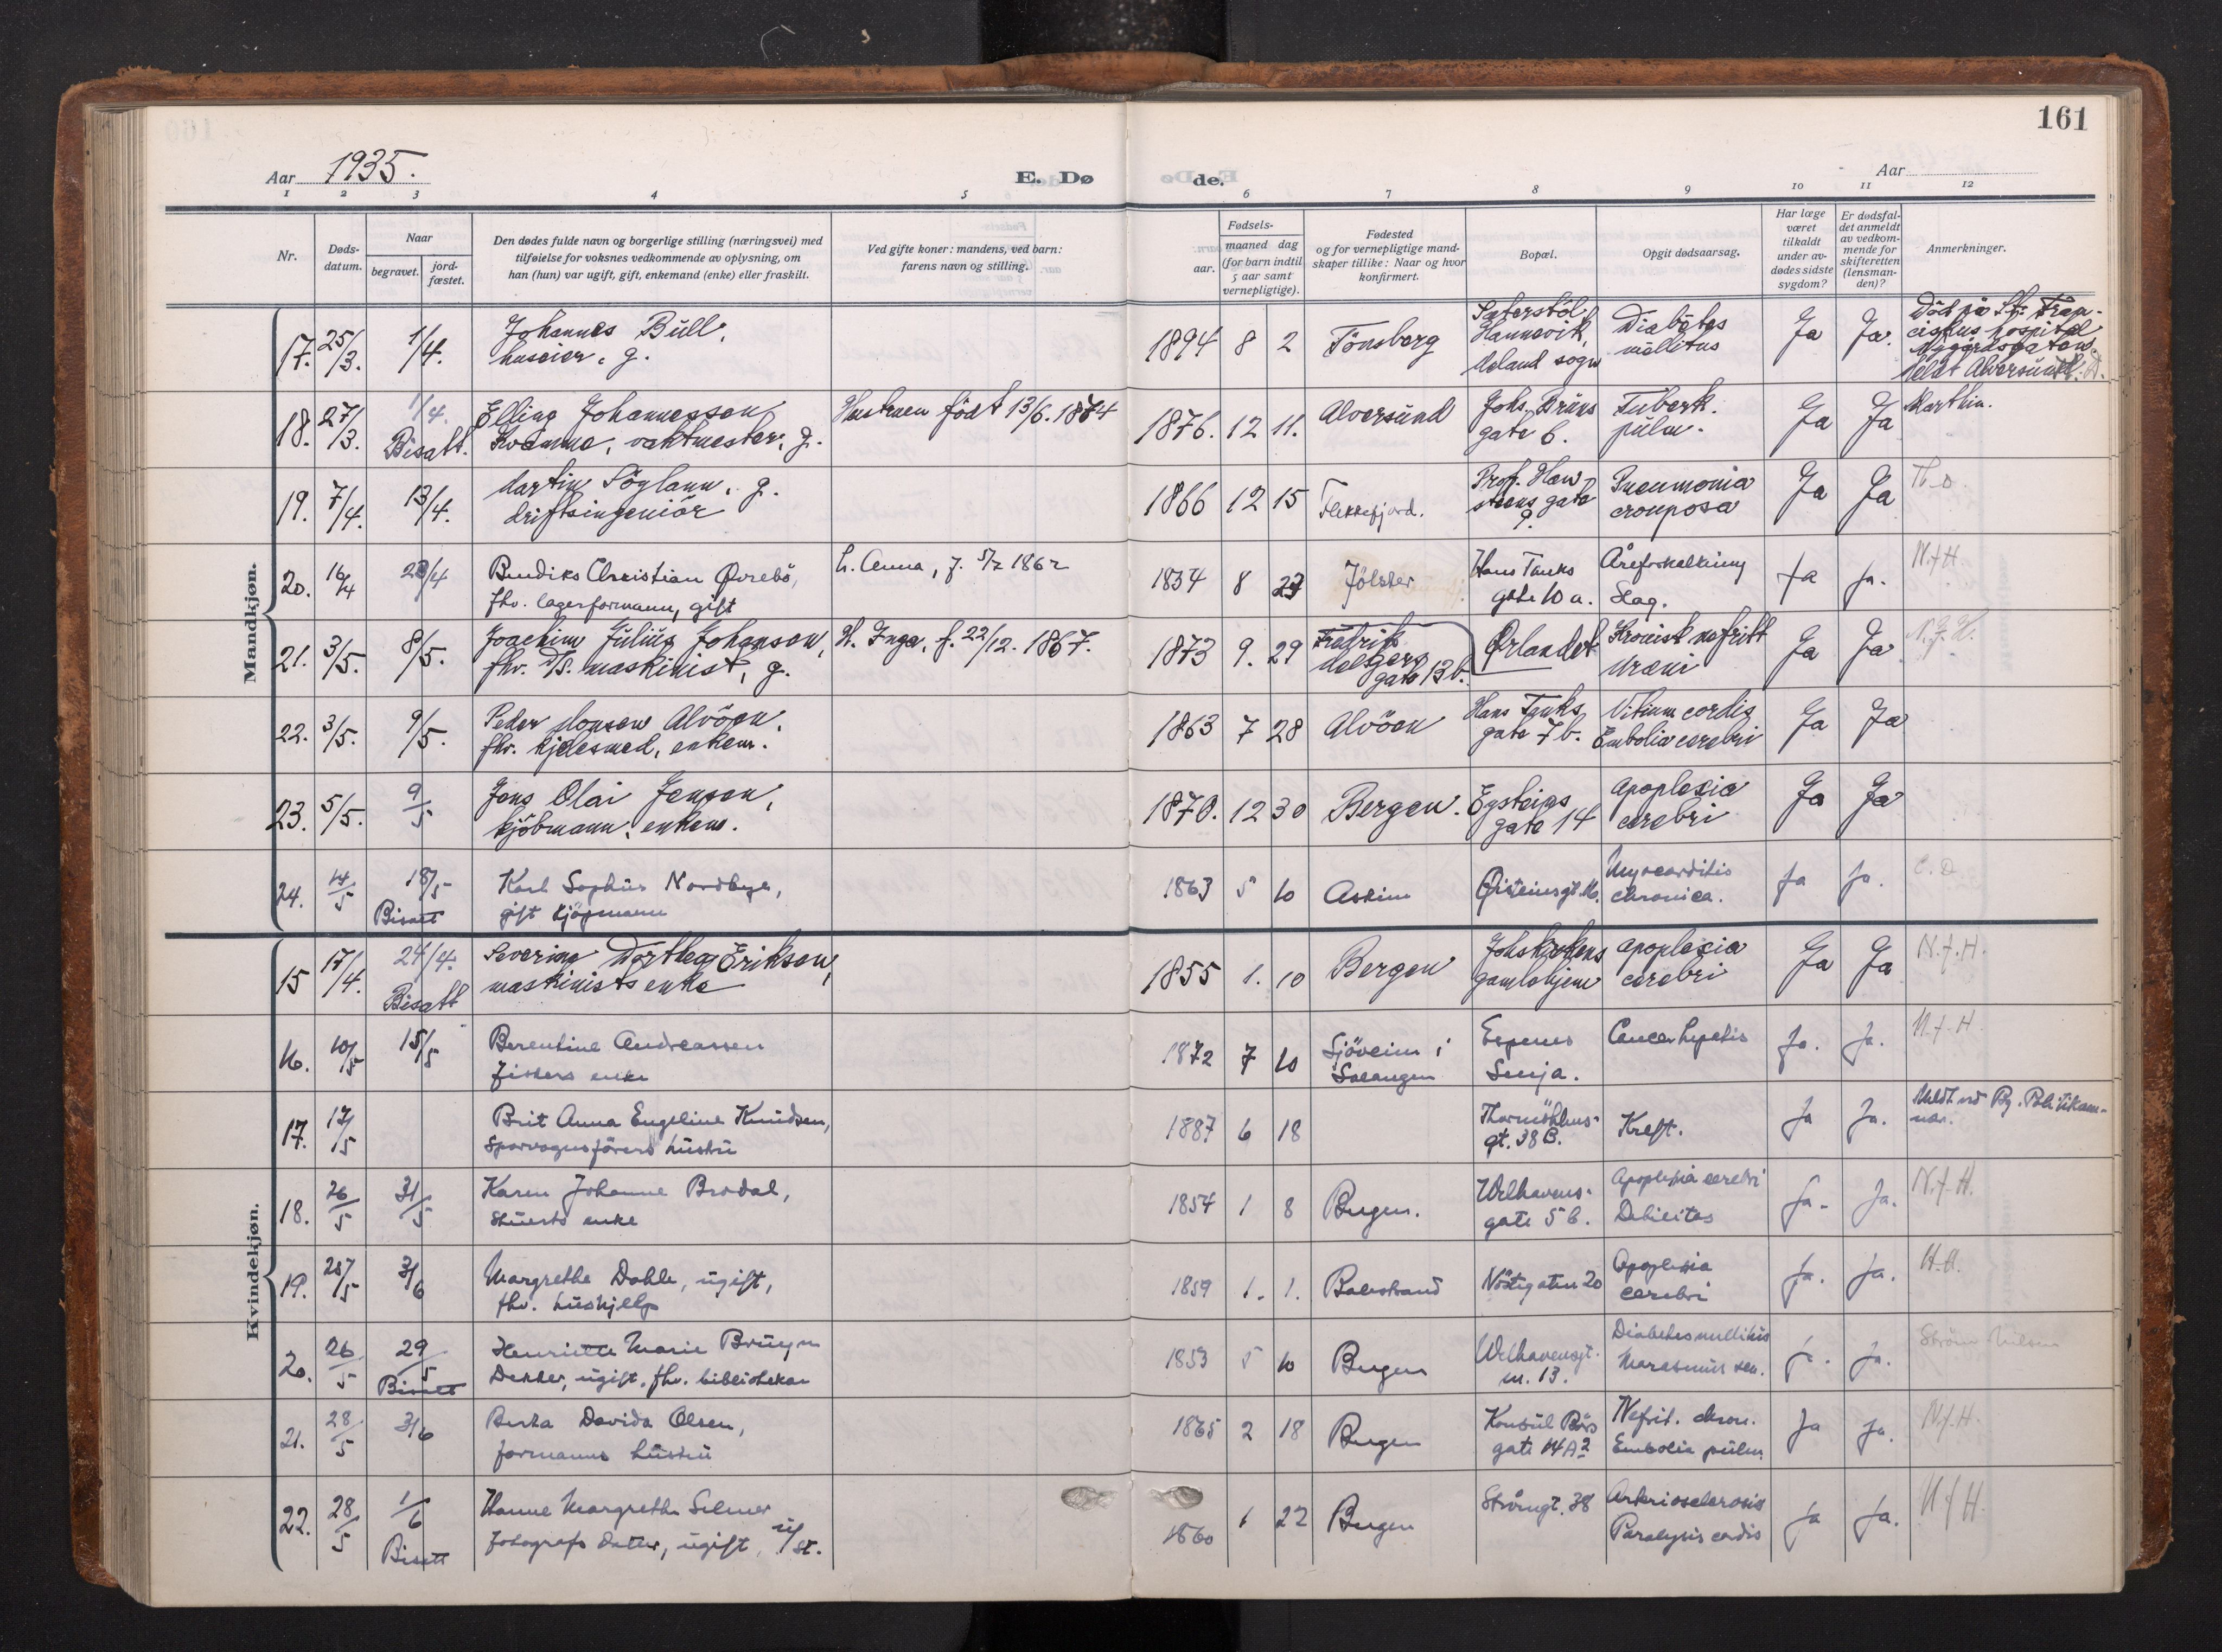 161
Aar 1935.
E. Dø de.
Aar
1 2 3 4 5 6 7 8 9 10 11 12
Nr.
Døds-datum.
Naar
begravet.
jord-fæstet.
Den dødes fulde navn og borgerlige stilling (næringsvei) med
tilføielse for voksnes vedkommende av oplysning, om
han (hun) var ugift, gift, enkemand (enke) eller fraskilt.
Ved gifte koner: mandens, ved barn:
farens navn og stilling.
Fødsels-
aar.
maaned dag
(for barn indtil
5 aar samt
vernepligtige).
Fødested
og for vernepligtige mand-
skaper tillike: Naar og hvor
konfirmert.
Bopæl.
Opgit dødsaarsag.
Har læge
været
tilkaldt
under av-
dødes sidste
sygdom?
Er dødsfal-
det anmeldt
av vedkom-
mende for
skifteretten
(lensman-
den)?
Anmerkninger.
Mandkjøn.
17. 25/3. 1/4. Johannes Bull, huseier, g. 1894 8 2 Tönsberg Hannevik, sogn Diabetes mellitus Ja Ja. Död på St. Fran-
ciskus hospital
Nygårdsgaten
Meldt Alversund
18. 27/3. 1/4. Bisatt. Elling Johannessen Kvamme, vaktmester, g. Hustruen född 13/6. 1874 1876. 12 11. Alversund Johs. Bruns gate 6. Tuberk. pulm. Ja Ja Marthin.
19. 7/4. 13/4. Martin Söglann, g. driftsingeniör 1866 12 15 Flekkefjord. Prof. Han steens gate 9. Pneumonia crouposa Ja Ja Th. D.
20. 16/4 23/4 Bendiks Christian Øvrebö, fhv. lagerformann, gift h. Anna, f. 5/7 1862 1854 8 27 Jölster Hans Tanks gate 10 a. Åreforkalkning Slag. Ja Ja. N.f.H.
21. 3/5. 8/5. Joachim Julius Johansen, fhv. D/S. maskinist, g. H. Inga, f. 22/12. 1867. 1873 9. 29 Fredrik Meltzers gate 13 b. Ørlandet Kronisk nefritt Uræmi Ja Ja N.f.H.
22. 3/5. 9/5. Peder Monsen Alvöen, fhv. kjelesmed, enkem. 1863 7 28 Alvöen Hans Tanks gate 7 b. Vitium cordis Embolia cerebri Ja Ja
23. 5/5. 9/5 Jens Olai Jensen, kjöbmann, enkem. 1870. 12 30 Bergen. Eysteins gate 14 apoplexia cerebri Ja Ja
24. 14/5 18/5 Bisatt Karl Sophus Nordbye, gift kjöpmann 1863 5 10 Askim Øisteinsgt. Myocarditis chronica. Ja Ja. C. D
Kvindekjøn.
15 17/4. 24/4. Bisatt Severine Dorthea Eriksen, maskinists enke 1855 1. 10 Bergen Johskirkens gamlehjem apoplexia cerebri Ja Ja N.f.H.
16. 10/5 15/5 Berentine Andreassen fiskers enke 1872 7 10 Sjöveien i Salangen Espenes Senja. Cancer hepatis Ja. Ja. N.f.H
17. 17/5 Brit Anna Engeline Knudsen, Sporvognsförers hustru 1887 6 18 Thormöhlens-gt. 38 B. Kreft. Ja Ja. Meldt ved Bg. Politikam-mer.
18. 26/5 31/5 Karen Johanne Brodal, Stuerts enke 1854 1 8 Bergen. Welhavens-gate 5 b. Apoplexia cerebri Debilitas Ja. Ja. N.f.H.
19. 28/5 3/6 Margrethe Dahle, ugift, fhv. hushjelp 1859 1. 1. Balestrand Nöstegaten 20 Apoplexia cerebri Ja. Ja. H.H.
20. 26/5 29/5 Bisatt Henriette Marie Bruyn Dekker, ugift, fhv. bibliotekar 1853 5 10 Bergen Welhavensgt. nr. 13. Diabetes mellitus Marasmus sen. Ja. Ja. Ström Nilsen
21. 28/5 3/6 Berta Davida Olsen, formanns hustru 1865 2 18 Bergen Konsul Börs gate 14 A² Nefrit. chron. Embolia pulm. Ja Ja. N.f.H.
22. 28/5 1/6 Bisatt Hanne Margrethe Selmer fotografs datter, ugift, u/st. 1860 1 22 Bergen Strangt. 38 Arteriosclerosis Paralysis cordis Ja Ja. N.f.H.